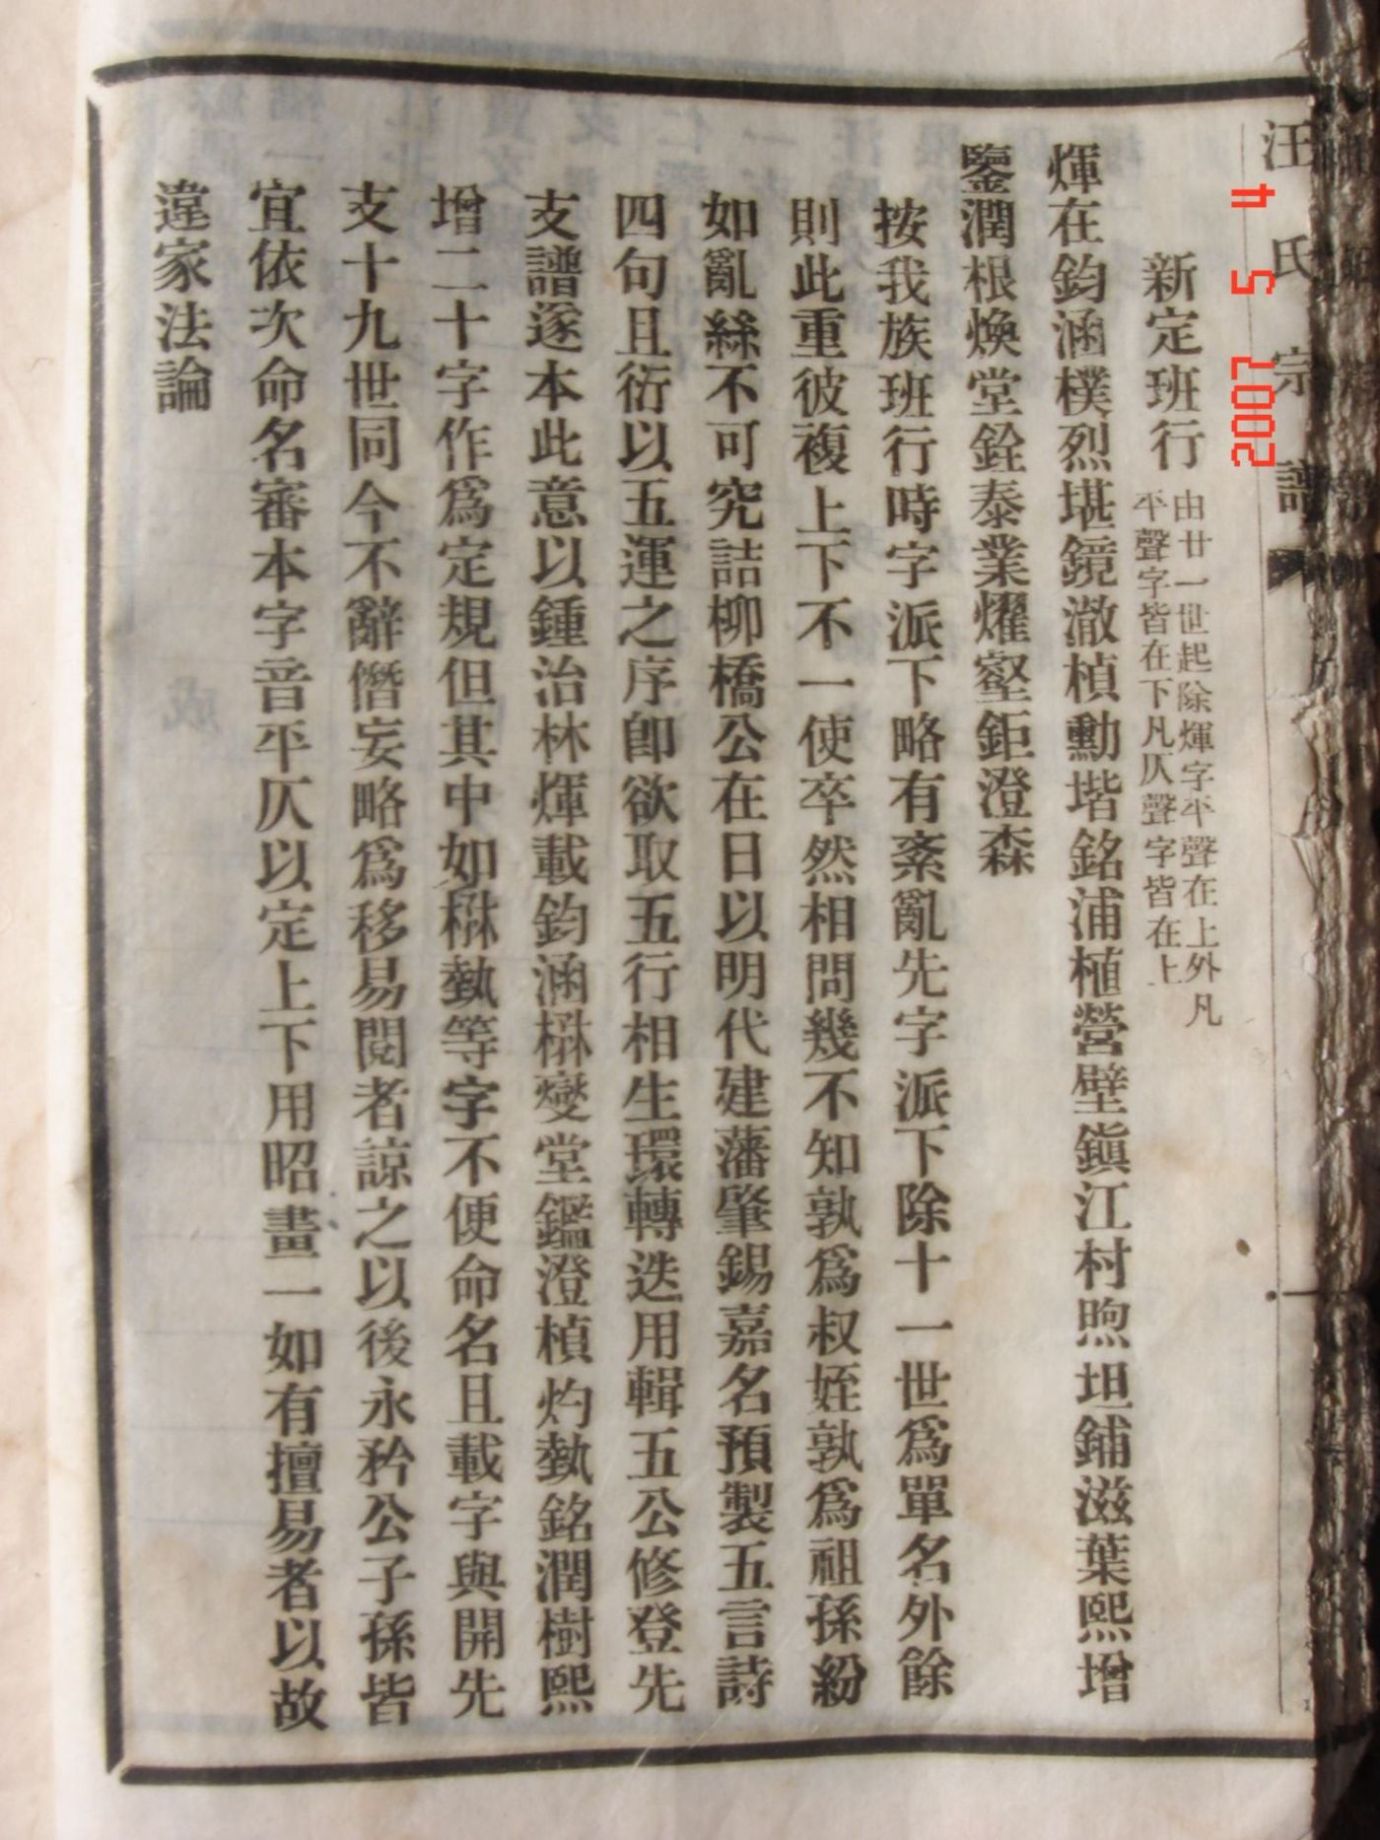 汪氏宗譜
新定班行
由廿一世起除煇字平聲在上外凡
平聲字皆在下凡仄聲字皆在上
煇在鈞涵樸烈堪鏡澈楨勳堦銘浦植營壁鎭江村煦坦鋪滋葉熙增
鑒潤根煥堂銓泰業燿壑鉅澄森
按我族班行時字派下略有紊亂先字派下除十一世爲單名外餘
則此重彼複上下不一使卒然相問幾不知孰爲叔姪孰爲祖孫紛
如亂絲不可究詰柳橋公在日以明代建藩肇錫嘉名預製五言詩
四句且衍以五運之序卽欲取五行相生環轉迭用輯五公修登先
支譜遂本此意以鍾治林煇載鈞涵楙燮堂鑑澄楨灼執銘潤樹熙
增二十字作爲定規但其中如楙執等字不便命名且載字與開先
支十九世同今不辭僭妄略爲移易閱者諒之以後永矜公子孫皆
宜依次命名審本字音平仄以定上下用昭畫一如有擅易者以故
違家法論
2007 5 4